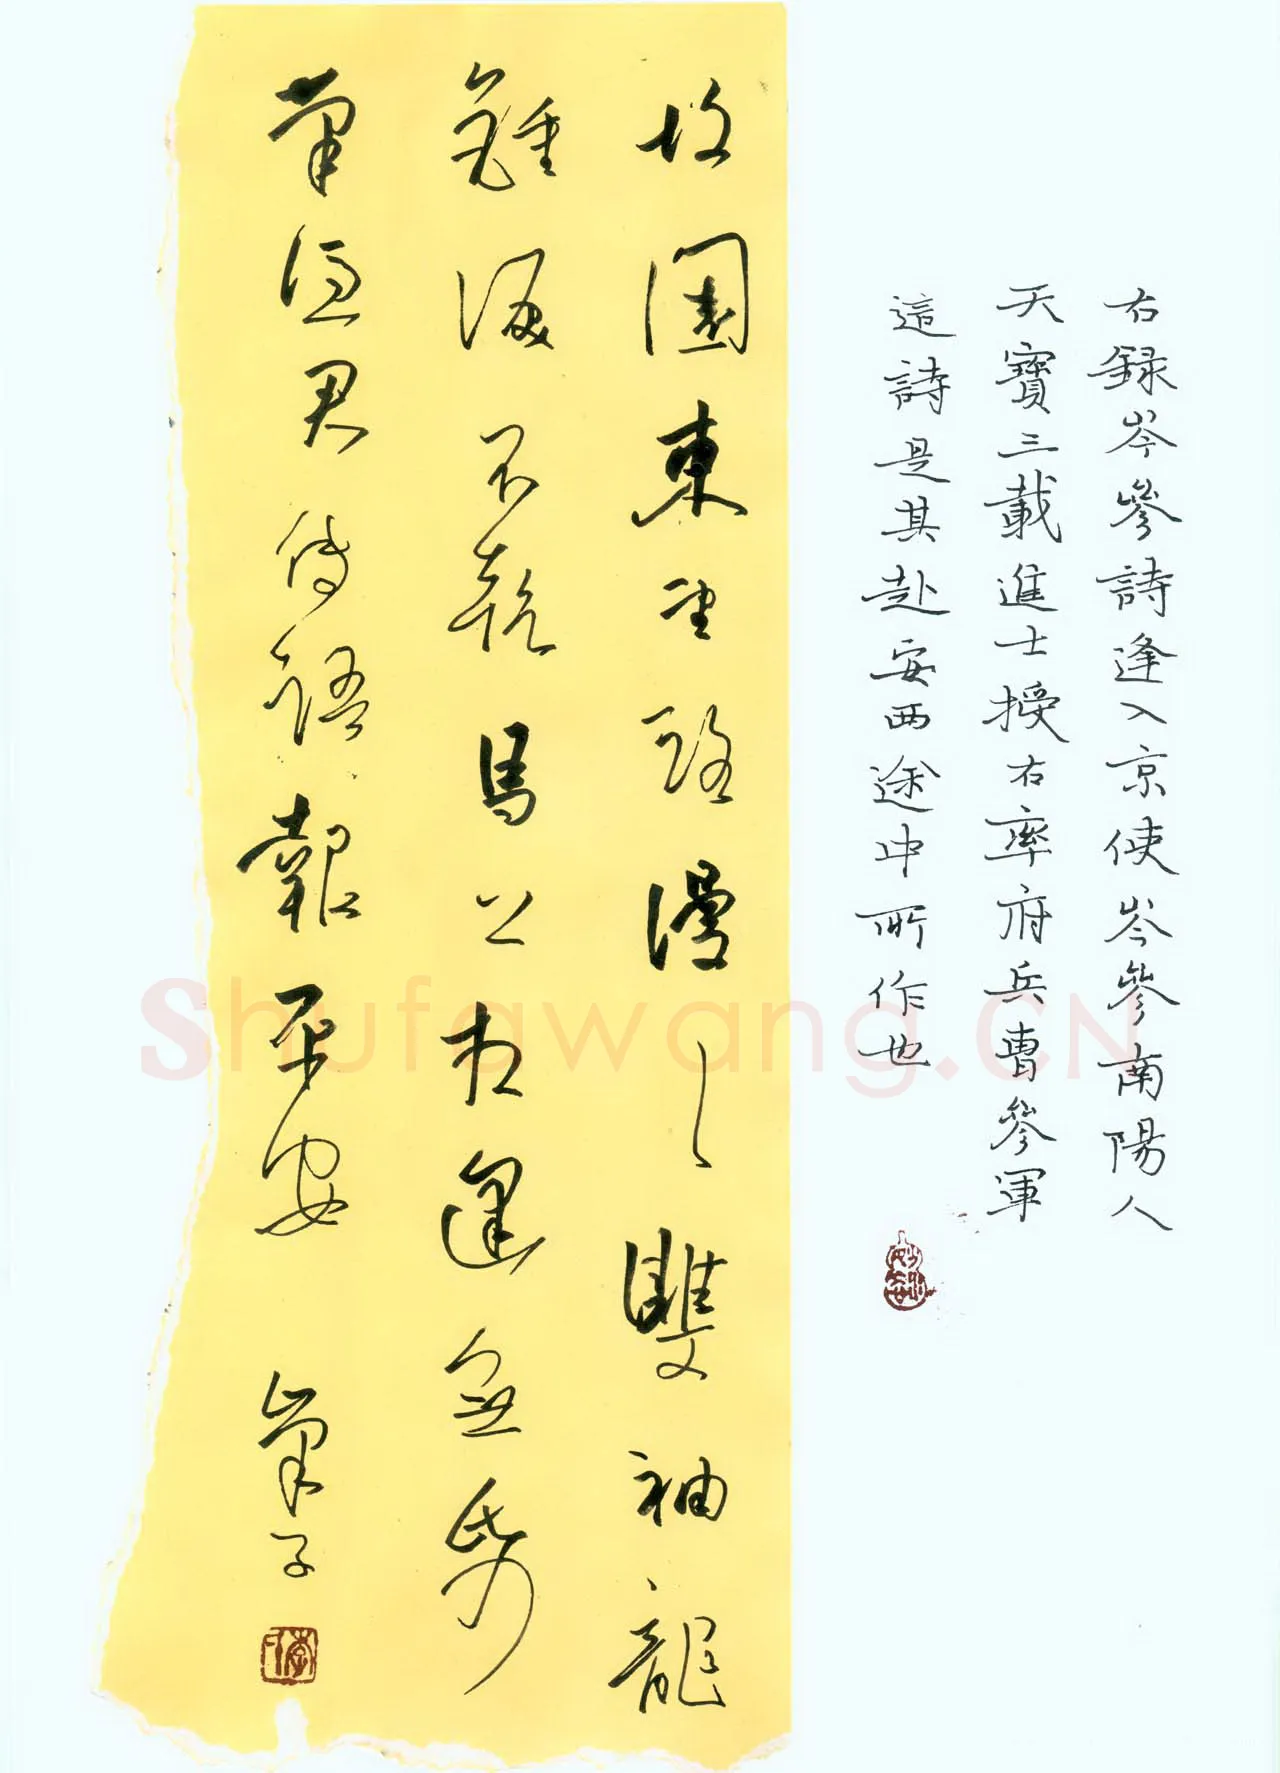 右録岑參詩逢入京使岑參南陽人
天寶三載進士授右率府兵曹參軍
這詩是其赴安西途中所作也
故園東望路漫〻雙袖龍
鍾淚不乾馬上相逢無紙
筆憑君傳語報平安
子
Shufawang.CN